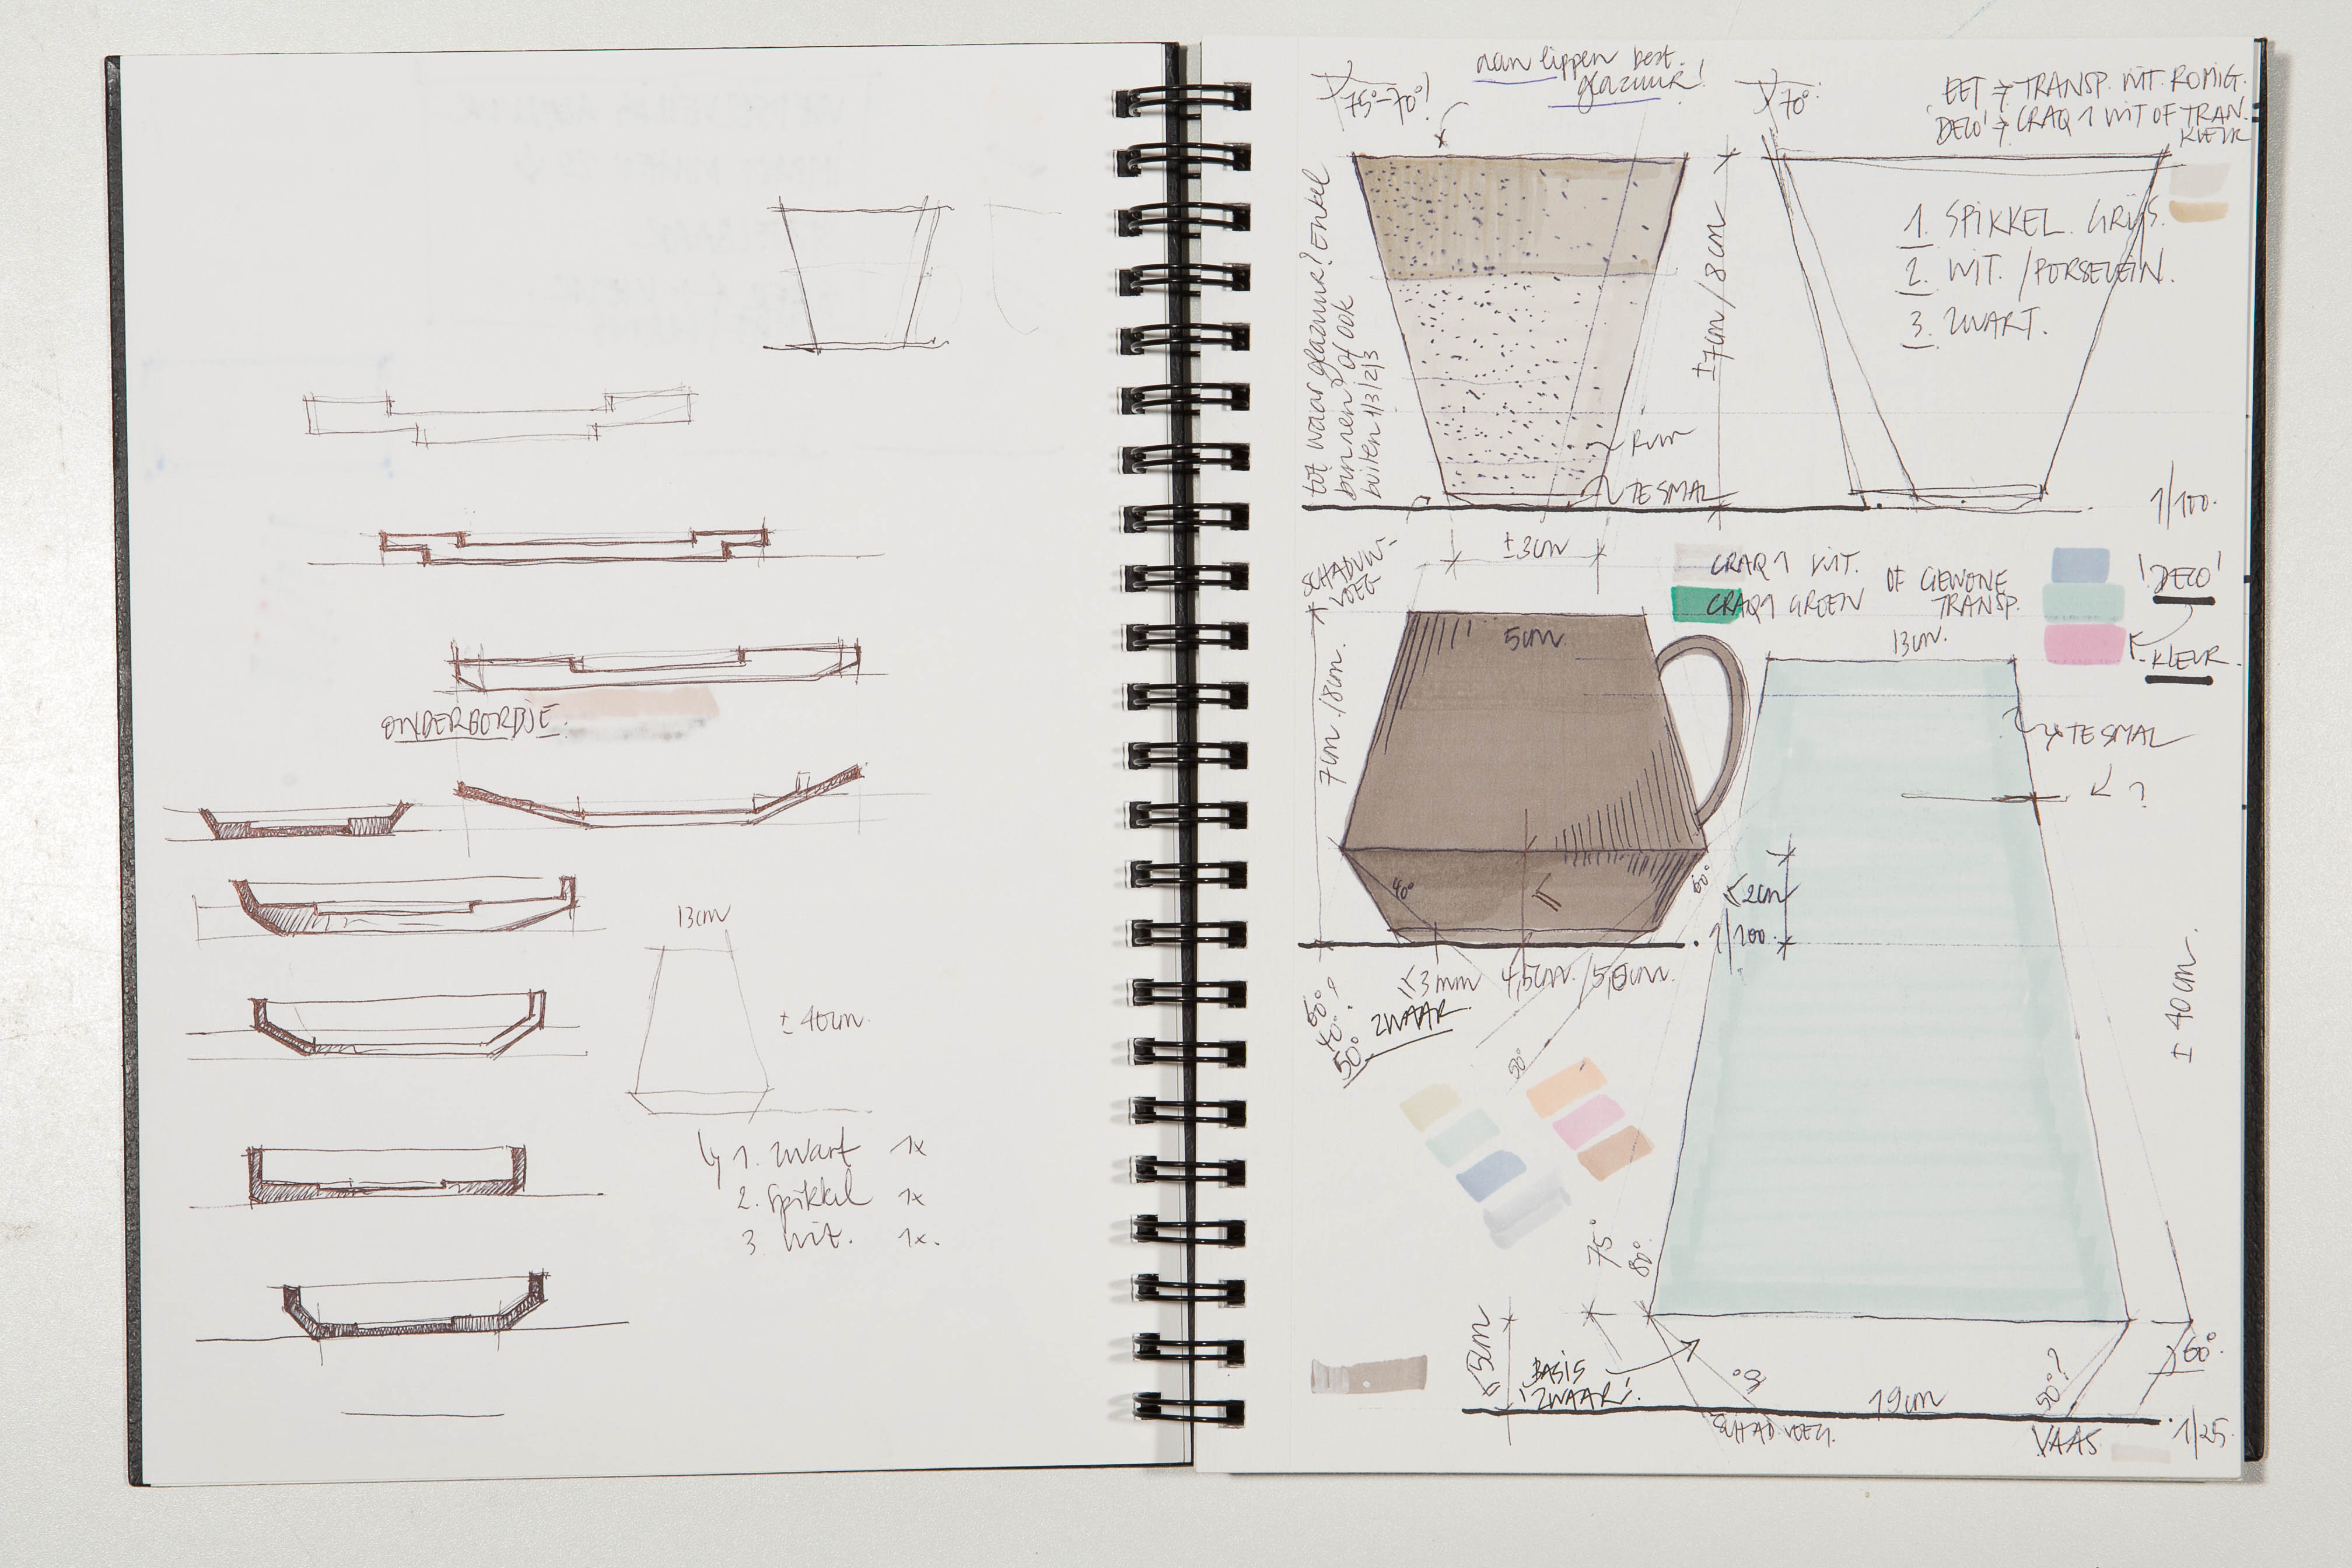 ONDERBORDJE.
13cm
± 40cm.
1. zwart 1x
2. Spikkel 1x
3 wit. 1x.
aan lippen best.
glazuur!
75°-70°!
70°
EET → TRANSP. WIT. ROMIG.
'DECO' → CRAQ 1 WIT OF TRAN.
KLEUR
1. SPIKKEL GRIJS.
2. WIT. /PORSELEIN.
3. ZWART.
tot waar glazuur? Enkel
binnen of ook
buiten 1/3 | 2/3
± 7cm/8cm
TESMAL
1/100.
±3cm
SCHADUW-
VOEG
CRAQ 1 WIT.
CRAQ 1 GROEN
OF GEWONE
TRANSP.
'DECO'
KLEUR.
5cm
7cm./8cm.
13cm.
TESMAL
?
40°
60°
2cm
1/100.
3mm
4,5cm./5,0cm.
ZWAAR
60°
40°?
50°
50°
± 40cm.
75°
80°
5cm
BASIS
'ZWAAR'!
SCHAD.VOEG.
19cm
50°?
60°
VAAS
1/25.